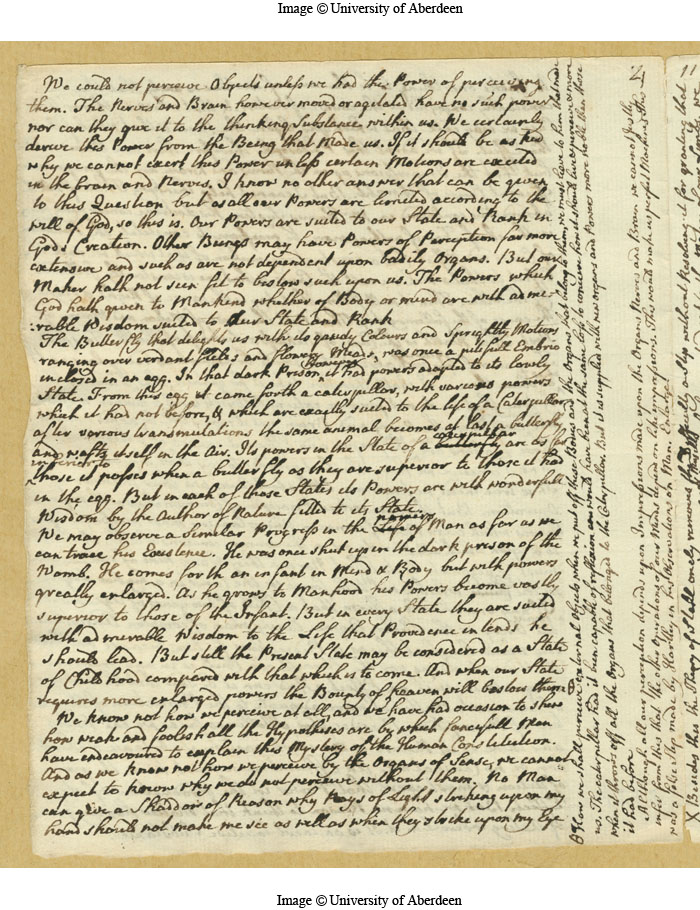 Image © University of Aberdeen
We could not perceive Objects unless we had the Power of perceiving
them. The Nerves and Brain however moved or agetated have no such power
nor can they give it to the thinking Substance within us. We certainly
derive this Power from the Being that Made us. If it should be asked
why we cannot exert this Power unless certain Motions are excited
in the brain and Nerves, I know no other answer that can be given
to this Question but as all our Powers are limited according to the
will of God, so this is. Our Powers are suited to our State and Rank in
Gods Creation. Other Beings may have Powers of Perception far more
extensive and such as are not dependent upon bodily Organs. But our
Maker hath not seen fit to bestow such upon us. The Powers which
God hath given to Mankind whether of Body or mind are with admi
:rable Wisdom suited to Our State and Rank
The Butterfly that delights us with its gaudy Colours and Sprightly Motions
ranging over verdant fields and flowery Meads, was once a pitifull Embrio
inclosed in an egg. In that dark Prison, it had powers adapted to its lowly
State. From this egg it came forth a caterpillar, with various powers
which it had not before, & which are exactly suited to the life of a Caterpillar
after various transmutations the same animal becomes at last a butterfly
and wafts itself in the Air. Its powers in the State of a caterpillar are as far
inferior to
those it posses when a butterfly as they are superior to those it had
in the egg. But in each of those States its Powers are with wonderfull
Wisdom by the Author of Nature fitted to its State.
We may observe a Similar Progress in the powers of Man as far as we
can trace his Existence. He was once shut up in the dark prison of the
Womb. He comes forth an infant in Mind & Body but with powers
greatly enlarged. As he grows to Manhood his Powers become vastly
superior to those of the Infant. But in every State they are suited
with admirable Wisdom to the Life that Providence intends he
should lead. But still the Present State may be considered as a State
of Childhood compared with that which is to come. And when our State
requires more enlarged powers the Bounty of heaven will bestow them
We know not how we perceive at all, and we have had occasion to shew
how weak and foolish all the Hypotheses are by which fancyfull Men
have endeavoured to explain this Mystery of the Human Constitution.
And as we know not how we perceive by the Organs of Sense, we cannot
expect to know why we do not perceive without them. No Man
can give a Shaddow of Reason why Rays of Light striking upon my
hand should not make me see as well as when they strike upon my Eye
How we shall perceive external objects when we put off these Bodies and the Organs that belong to them, we must leave to him that made
us. The caterpillar had it been capable of reflexion would have been at the same loss to conceive how it should live perceive & move
when it throws off all the Organs that belonged to the Caterpillar. But it is supplied with new organs and Powers more noble then those
it had before
Although all our perception depends upon Impressions made upon the Organs Nerves and Brain we cannot justly
infer from this that the other Operations of our Mind depend on like impressions. This
was a false step made by Dr Hartley in his Observations on Man.
Image © University of Aberdeen